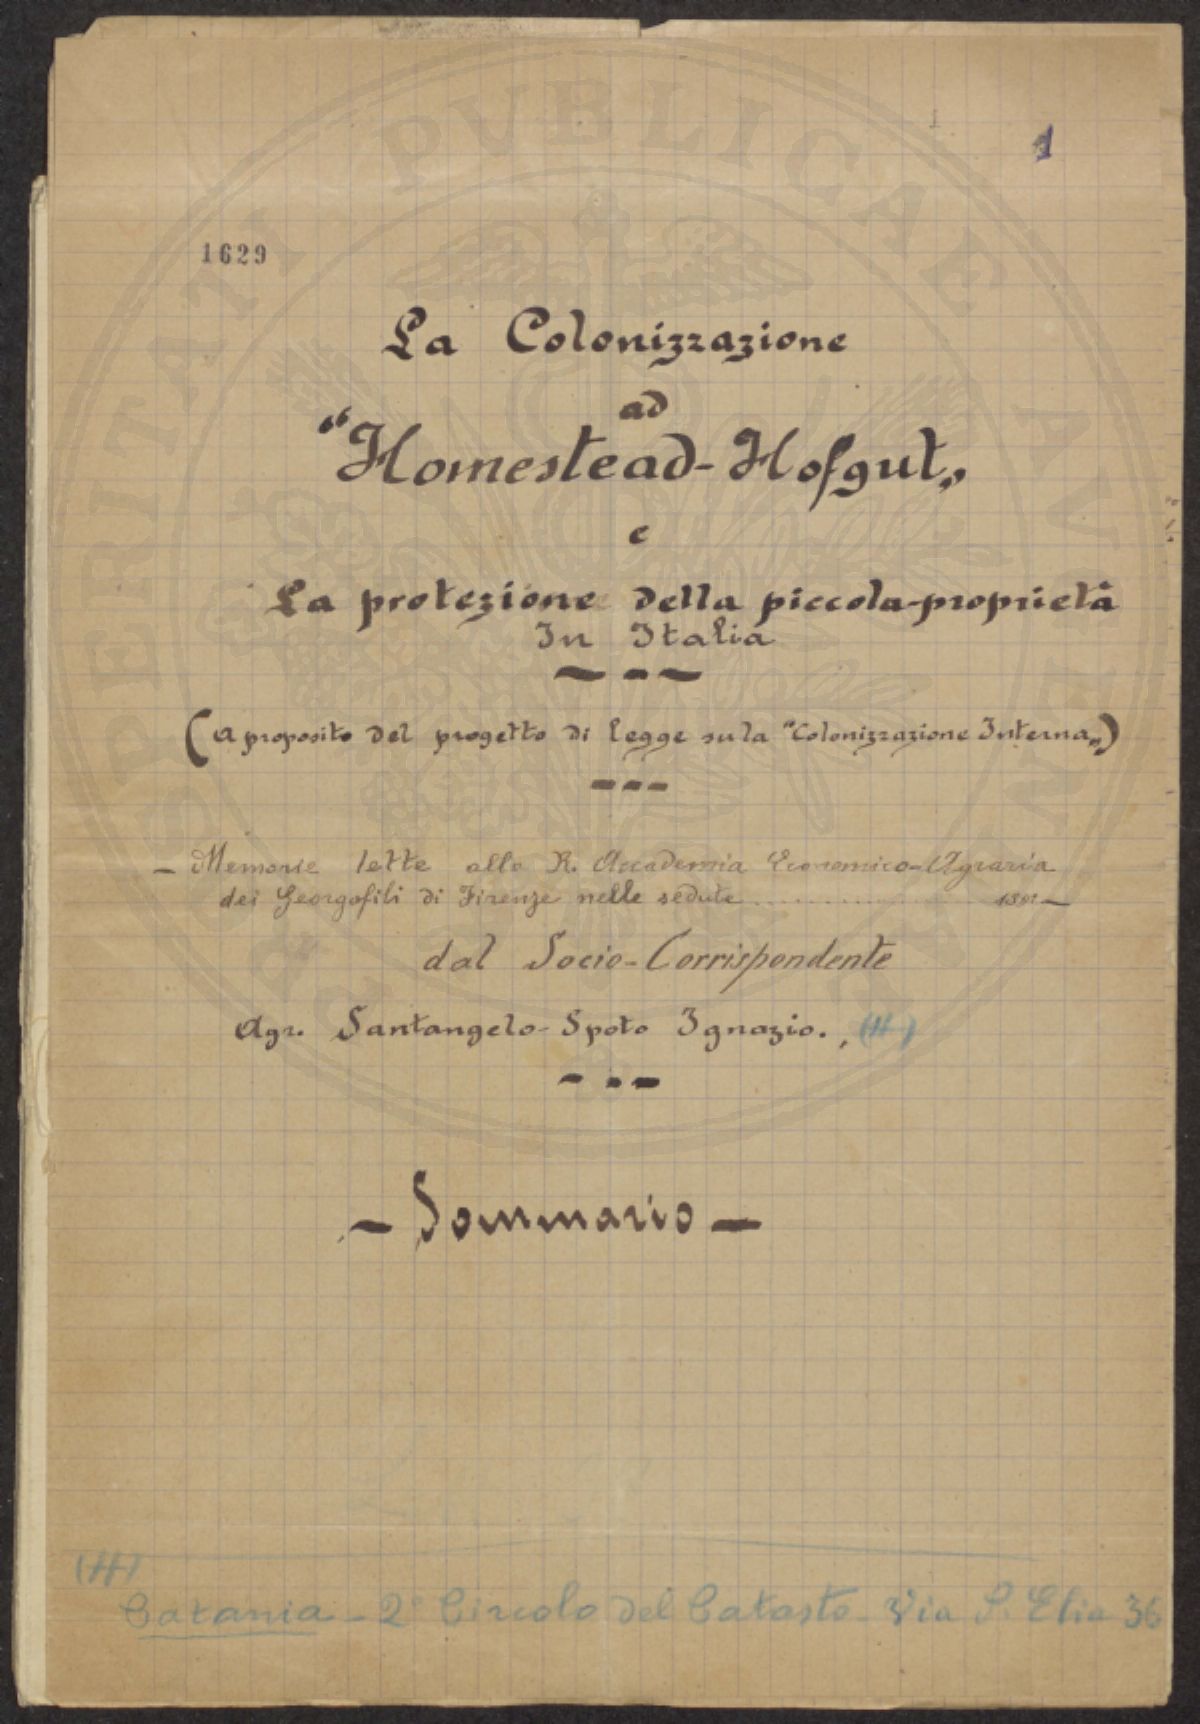 1
1629
La Colonizzazione
ad
“Homestead-Hofgut„
e
La protezione della piccola-proprietà
In Italia
(A proposito del progetto di legge su la “Colonizzazione Interna„)
– Memorie lette alla R. Accademia Economico-Agraria
dei Georgofili di Firenze nelle sedute ................
dal Socio-Corrispondente
Agr. Santangelo-Spoto Ignazio., (H)
– Sommario –
(H)
Catania – 2° Circolo del Catasto – Via S. Elia 36
PROSPERITATI PUBLICAE AUGENDAE